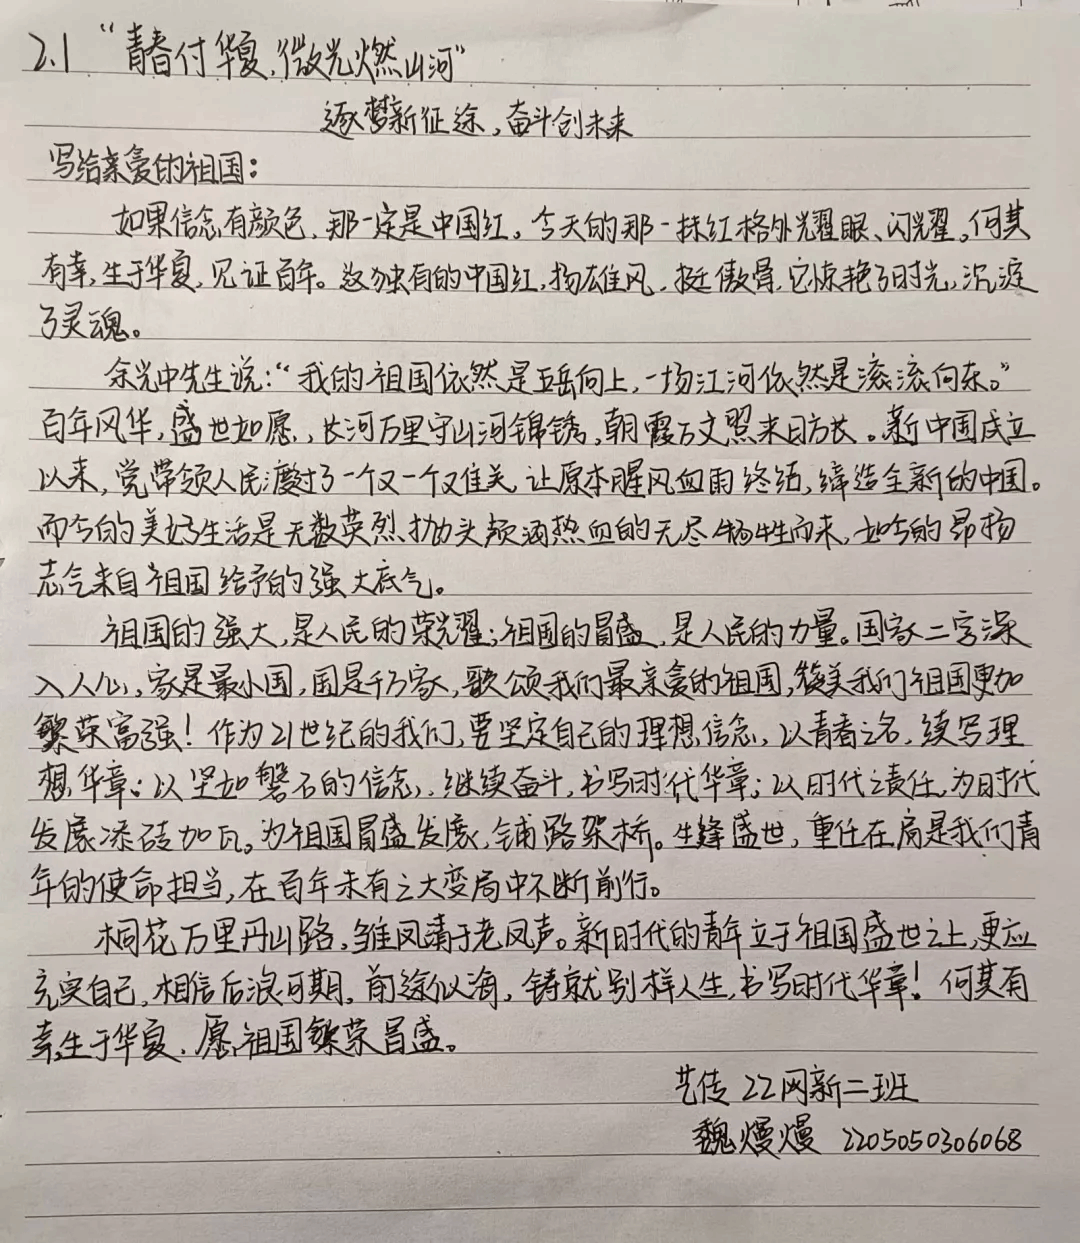 2.1 “青春付华夏,微光燃山河”
逐梦新征途,奋斗创未来
写给亲爱的祖国:
如果信念有颜色,那一定是中国红。今天的那一抹红格外耀眼、闪耀。何其
有幸,生于华夏,见证百年。这独有的中国红,扬雄风,挺傲骨,它惊艳了时光,沉淀
了灵魂。
余光中先生说:“我的祖国依然是五岳向上,一切江河依然是滚滚向东。”
百年风华,盛世如愿,长河万里守山河锦锈,朝霞万丈照来日方长。新中国成立
以来,党带领人民渡过了一个又一个难关,让原本腥风血雨终结,缔造全新的中国。
而今的美好生活是无数英烈抛头颅洒热血的无尽牺牲而来,如今的昂扬
志气来自祖国给予的强大底气。
祖国的强大,是人民的荣耀;祖国的昌盛,是人民的力量。国家二字深
入人心,家是最小国,国是千万家,歌颂我们最亲爱的祖国,赞美我们祖国更加
繁荣富强!作为21世纪的我们,要坚定自己的理想信念,以青春之名,续写理
想华章;以坚如磐石的信念,继续奋斗,书写时代华章;以时代之责任,为时代
发展添砖加瓦。为祖国昌盛发展,铺路架桥。生逢盛世,重任在肩是我们青
年的使命担当,在百年未有之大变局中不断前行。
桐花万里丹山路,雏凤清于老凤声。新时代的青年立于祖国盛世之上,更应
充实自己,相信后浪可期,前途似海,铸就别样人生,书写时代华章!何其有
幸,生于华夏,愿祖国繁荣昌盛。
艺传22网新二班
魏熳熳 2205050306068